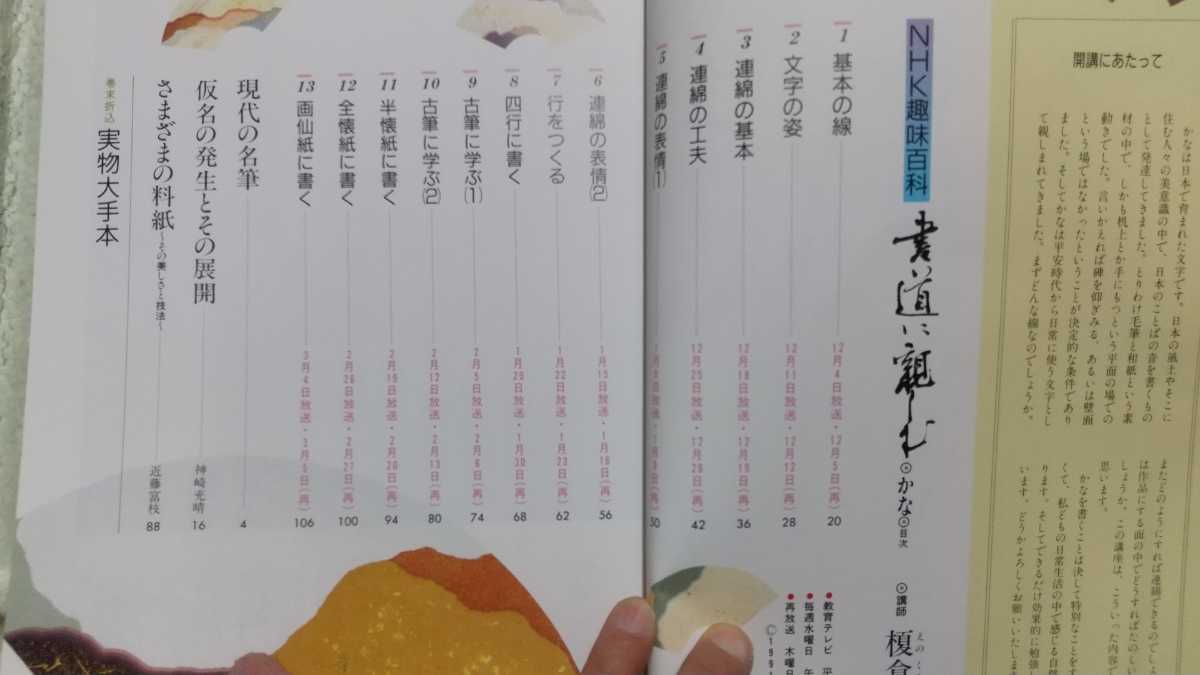 開講にあたって
かなは日本で育まれた文字です。日本の風土やそこに
住む人々の美意識の中で、日本のことばの音を書くもの
として発達してきました。とりわけ毛筆と和紙という素
材の中で、しかも机上とか手にもつという平面の場での
動きでした。言いかえれば碑を仰ぎみる、あるいは壁面
という場ではなかったということが決定的な条件であり
ました。そしてかなは平安時代から日常に使う文字とし
て親しまれてきました。まずどんな線なのでしょうか。
またどのようにすれば連綿できるのでしょ
は作品にする面の中でどうすればたのしい
しょうか。この講座は、こういった内容で
思います。
かなを書くことは決して特別なことをす
くて、私どもの日常生活の中で感じる自然
ります。そしてできるだけ効果的に勉強し
います。どうかよろしくお願いいたします
NHK趣味百科 書道に親しむ かな 目次
講師 榎倉
えのくら
1 基本の線 12月4日放送・12月5日(再) 20
2 文字の姿 12月11日放送・12月12日(再) 28
3 連綿の基本 12月18日放送・12月19日(再) 36
4 連綿の工夫 12月25日放送・12月26日(再) 42
5 連綿の表情(1) 1月8日放送・1月9日(再) 50
教育テレビ
毎週水曜日
再放送 木曜日
©199
6 連綿の表情(2) 1月15日放送・1月16日(再) 56
7 行をつくる 1月22日放送・1月23日(再) 62
8 四行に書く 1月29日放送・1月30日(再) 68
9 古筆に学ぶ(1) 2月5日放送・2月6日(再) 74
10 古筆に学ぶ(2) 2月12日放送・2月13日(再) 80
11 半懐紙に書く 2月19日放送・2月20日(再) 94
12 全懐紙に書く 2月26日放送・2月27日(再) 100
13 画仙紙に書く 3月4日放送・3月5日(再) 106
現代の名筆 4
仮名の発生とその展開 神崎充晴 16
さまざまの料紙〜その美しさと技法〜 近藤富枝 88
巻末折込 実物大手本